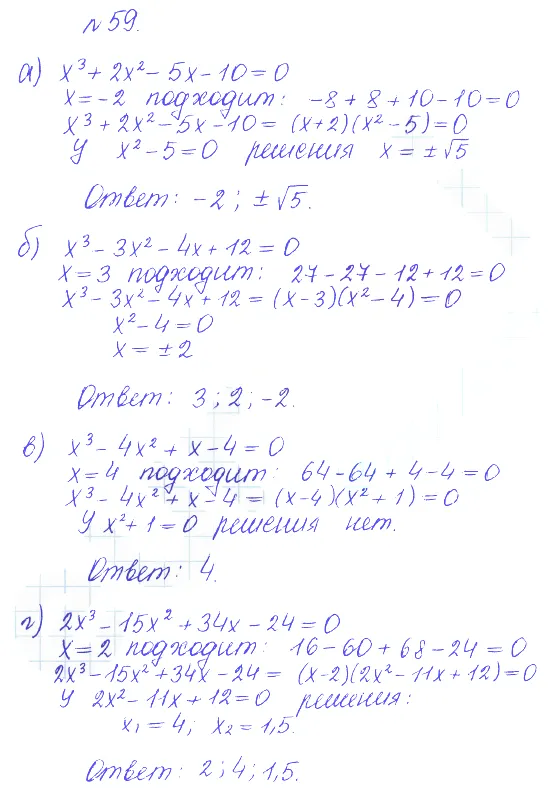 № 59.
а) x³ + 2x² - 5x - 10 = 0
x = -2 подходит: -8 + 8 + 10 - 10 = 0
x³ + 2x² - 5x - 10 = (x+2)(x² - 5) = 0
У x² - 5 = 0 решения x = ± √5
Ответ: -2 ; ± √5.
б) x³ - 3x² - 4x + 12 = 0
x = 3 подходит: 27 - 27 - 12 + 12 = 0
x³ - 3x² - 4x + 12 = (x - 3)(x² - 4) = 0
x² - 4 = 0
x = ± 2
Ответ: 3 ; 2 ; -2.
в) x³ - 4x² + x - 4 = 0
x = 4 подходит: 64 - 64 + 4 - 4 = 0
x³ - 4x² + x - 4 = (x - 4)(x² + 1) = 0
У x² + 1 = 0 решения нет.
Ответ: 4.
г) 2x³ - 15x² + 34x - 24 = 0
x = 2 подходит: 16 - 60 + 68 - 24 = 0
2x³ - 15x² + 34x - 24 = (x - 2)(2x² - 11x + 12) = 0
У 2x² - 11x + 12 = 0 решения:
x₁ = 4 ; x₂ = 1,5.
Ответ: 2 ; 4 ; 1,5.